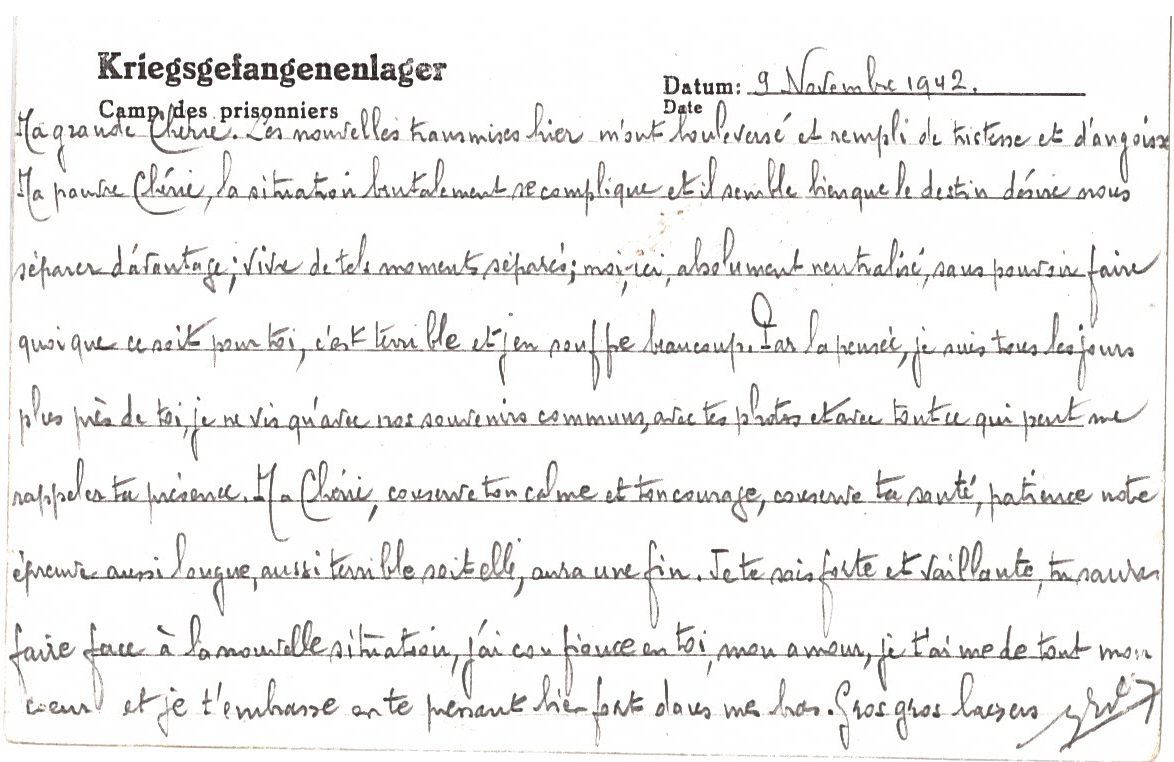 Kriegsgefangenenlager
Camp des prisonniers
Datum: 9 Novembre 1942.
Date
Ma grande Chérie. Les nouvelles transmises hier m'ont bouleversé et rempli de tristesse et d'angoisse
Ma pauvre Chérie, la situation brutalement se complique et il semble bien que le destin désire nous
séparer d'avantage; vivre de tels moments séparés; moi, ici, absolument neutralisé, sans pouvoir faire
quoi que ce soit pour toi, c'est terrible et j'en souffre beaucoup. Par la pensée, je suis tous les jours
plus près de toi, je ne vis qu'avec nos souvenirs communs, avec tes photos et avec tout ce qui peut me
rappeler ta présence. Ma Chérie, conserve ton calme et ton courage, conserve ta santé, patience notre
épreuve aussi longue, aussi terrible soit elle, aura une fin. Je te sais forte et vaillante, tu sauras
faire face à la nouvelle situation, j'ai confiance en toi, mon amour, je t'aime de tout mon
coeur et je t'embrasse en te prenant bien fort dans mes bras. Gros gros baisers